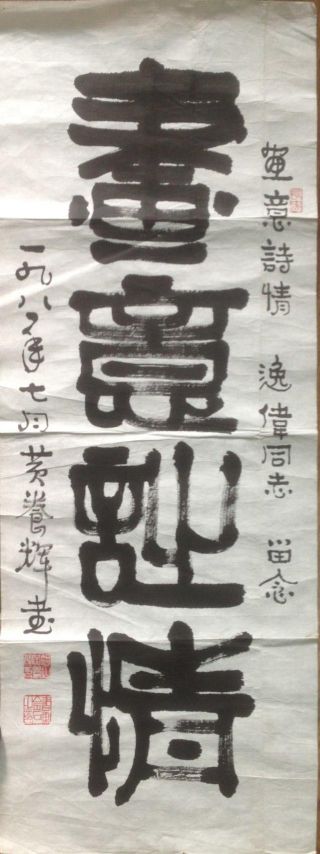 畫意詩情 逸偉同志 留念
畫意詩情
一九八八年七月黃養輝書